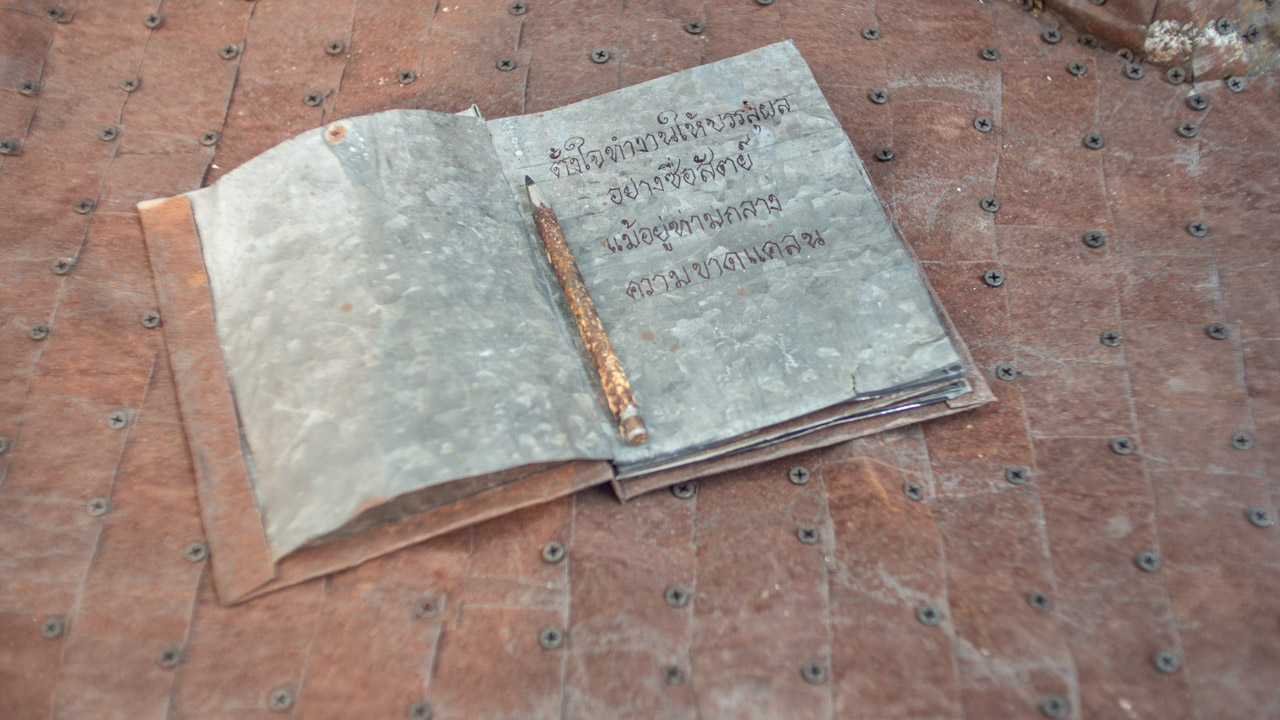 ตั้งใจทำงานให้บรรลุผล
อย่างซื่อสัตย์
แม้อยู่ท่ามกลาง
ความขาดแคลน